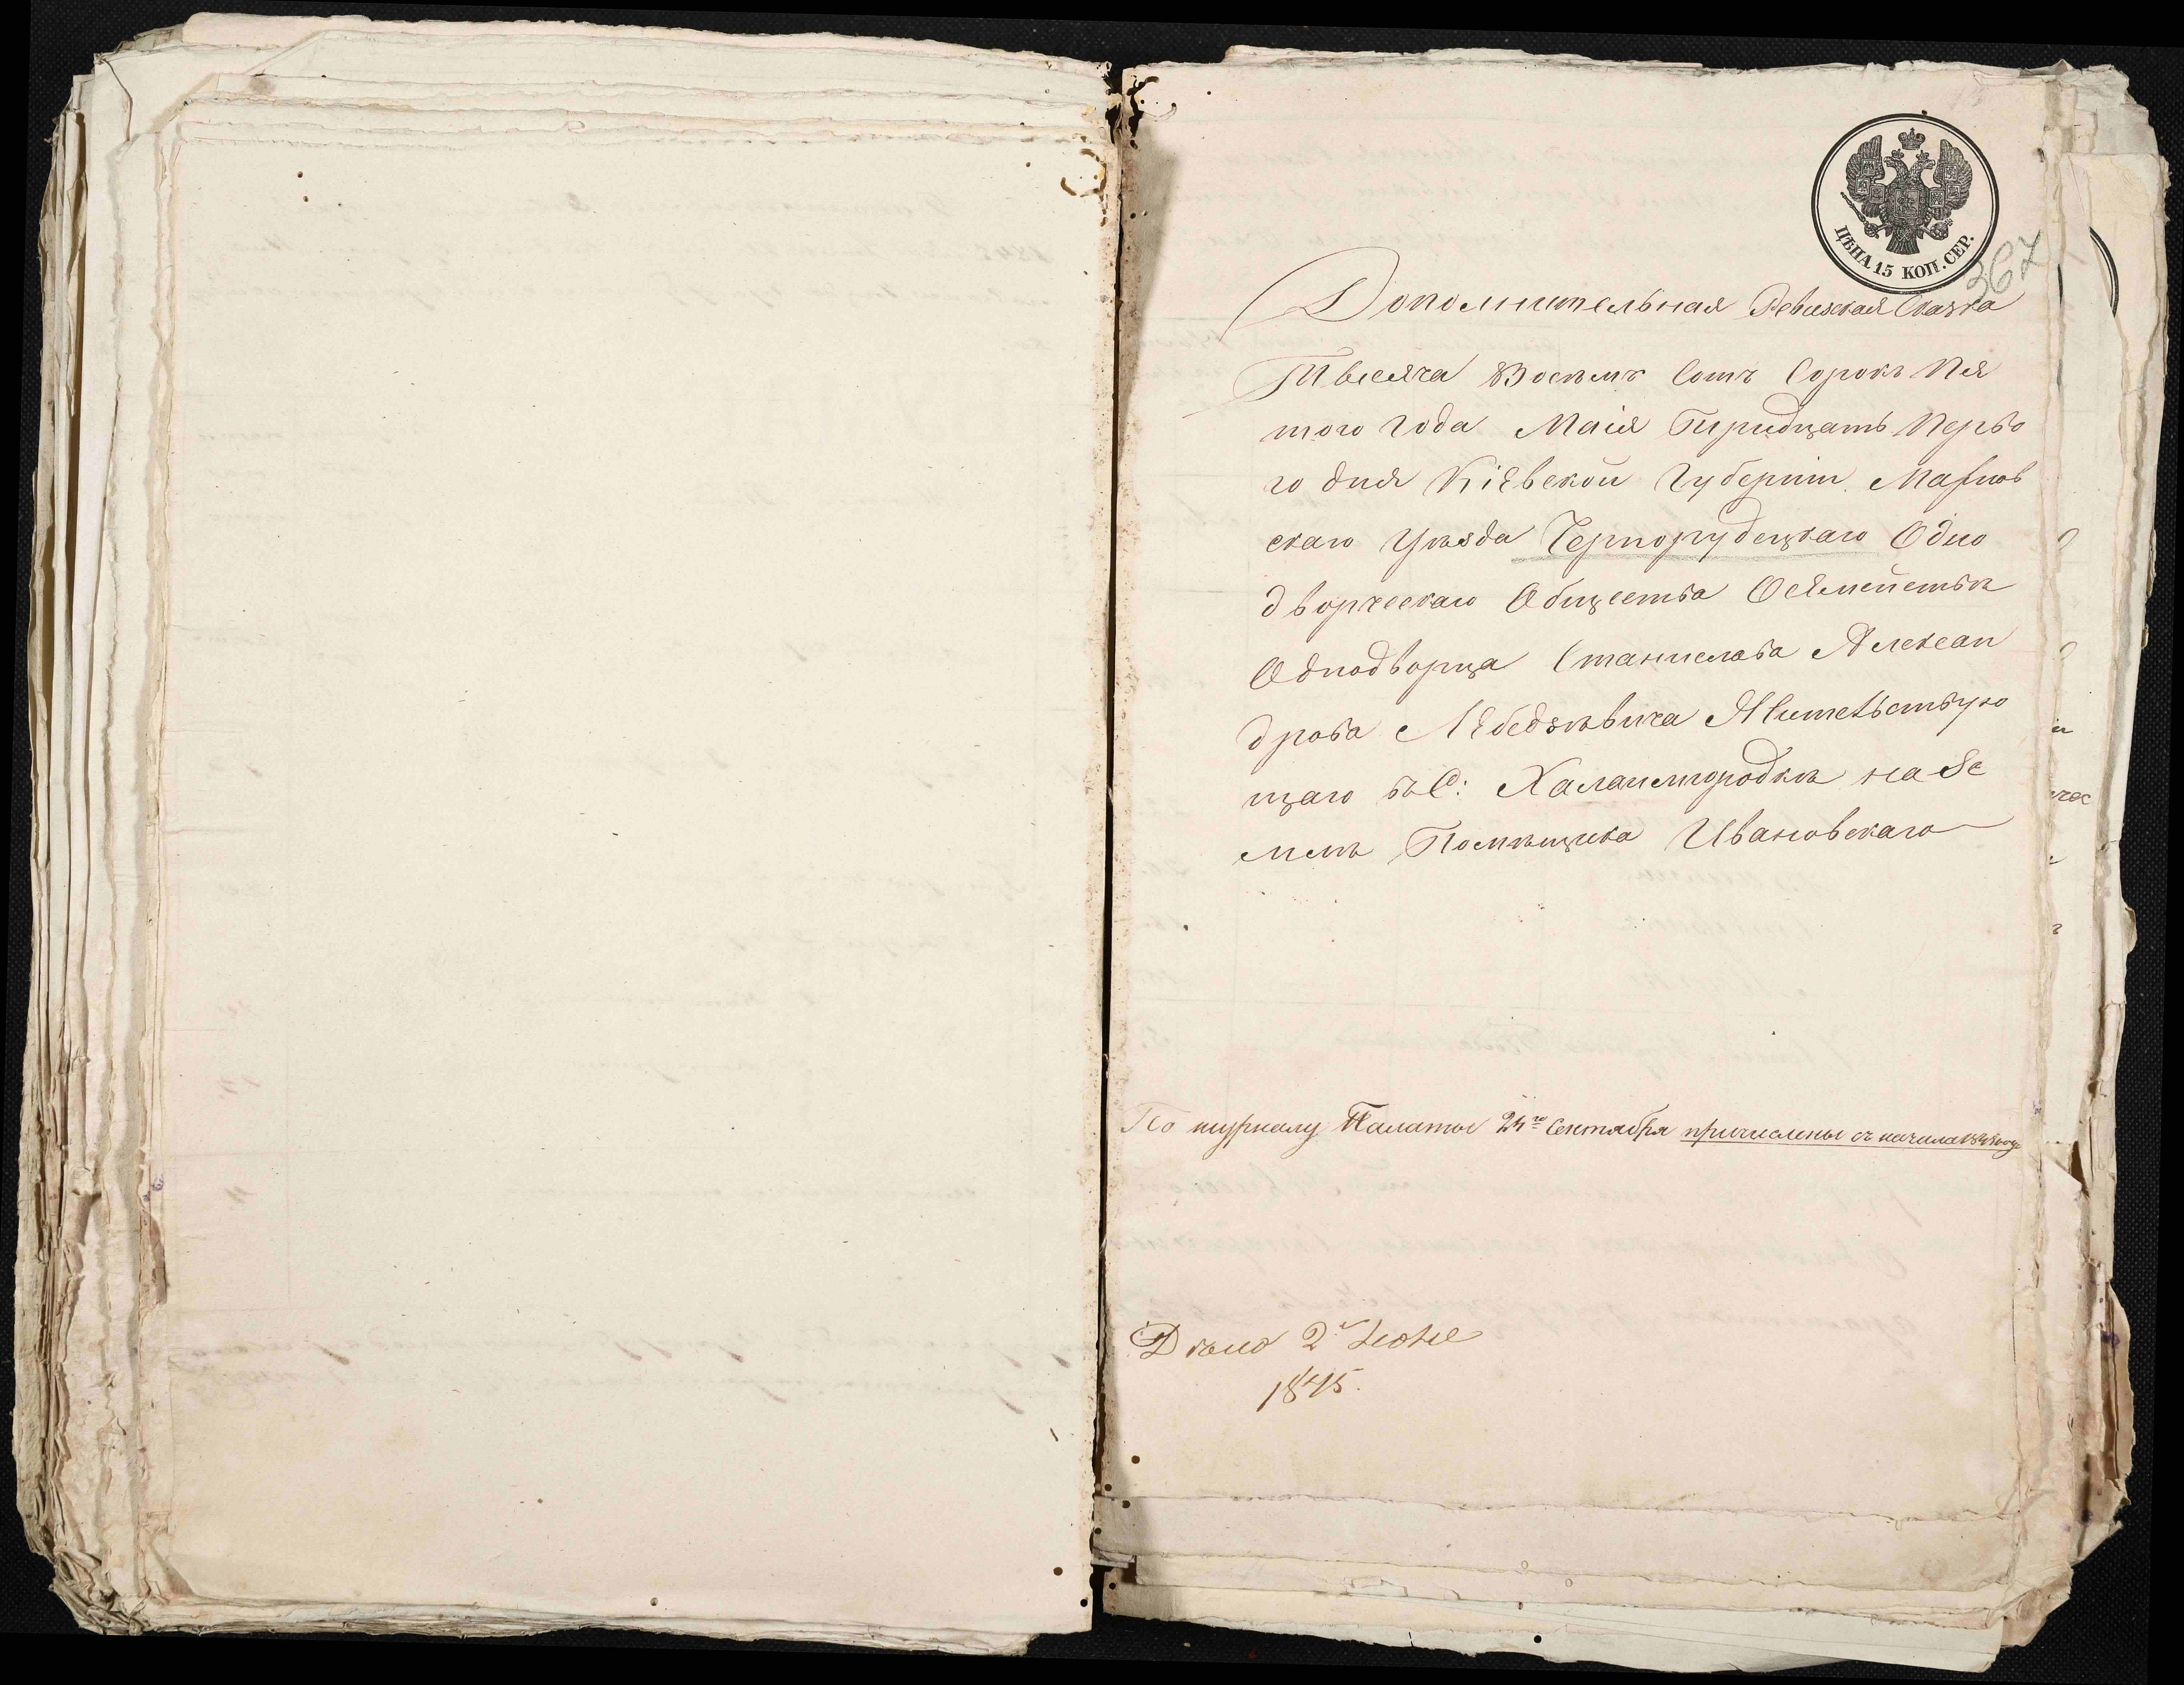 ЦѢНА 15 КОП. СЕР.
367
Дополнительная Ревизская Сказка
Тысяча Восемъ Сотъ Сорокъ Пя
того года Маія Тридцать Перво
го дня Кіевской Губерніи Махнов
скаго Уѣзда Чернорудецкаго Одно
дворческаго Общества О сѣмействѣ
Однодворца Станислава Алексан
дрова Лебедзѣвича Жительствую
щаго въ С: Халаимгородкѣ на Зе
млѣ Помѣщика Ивановскаго
По журналу Палаты Сентября причислены съ начала
2 Іюня
1845.